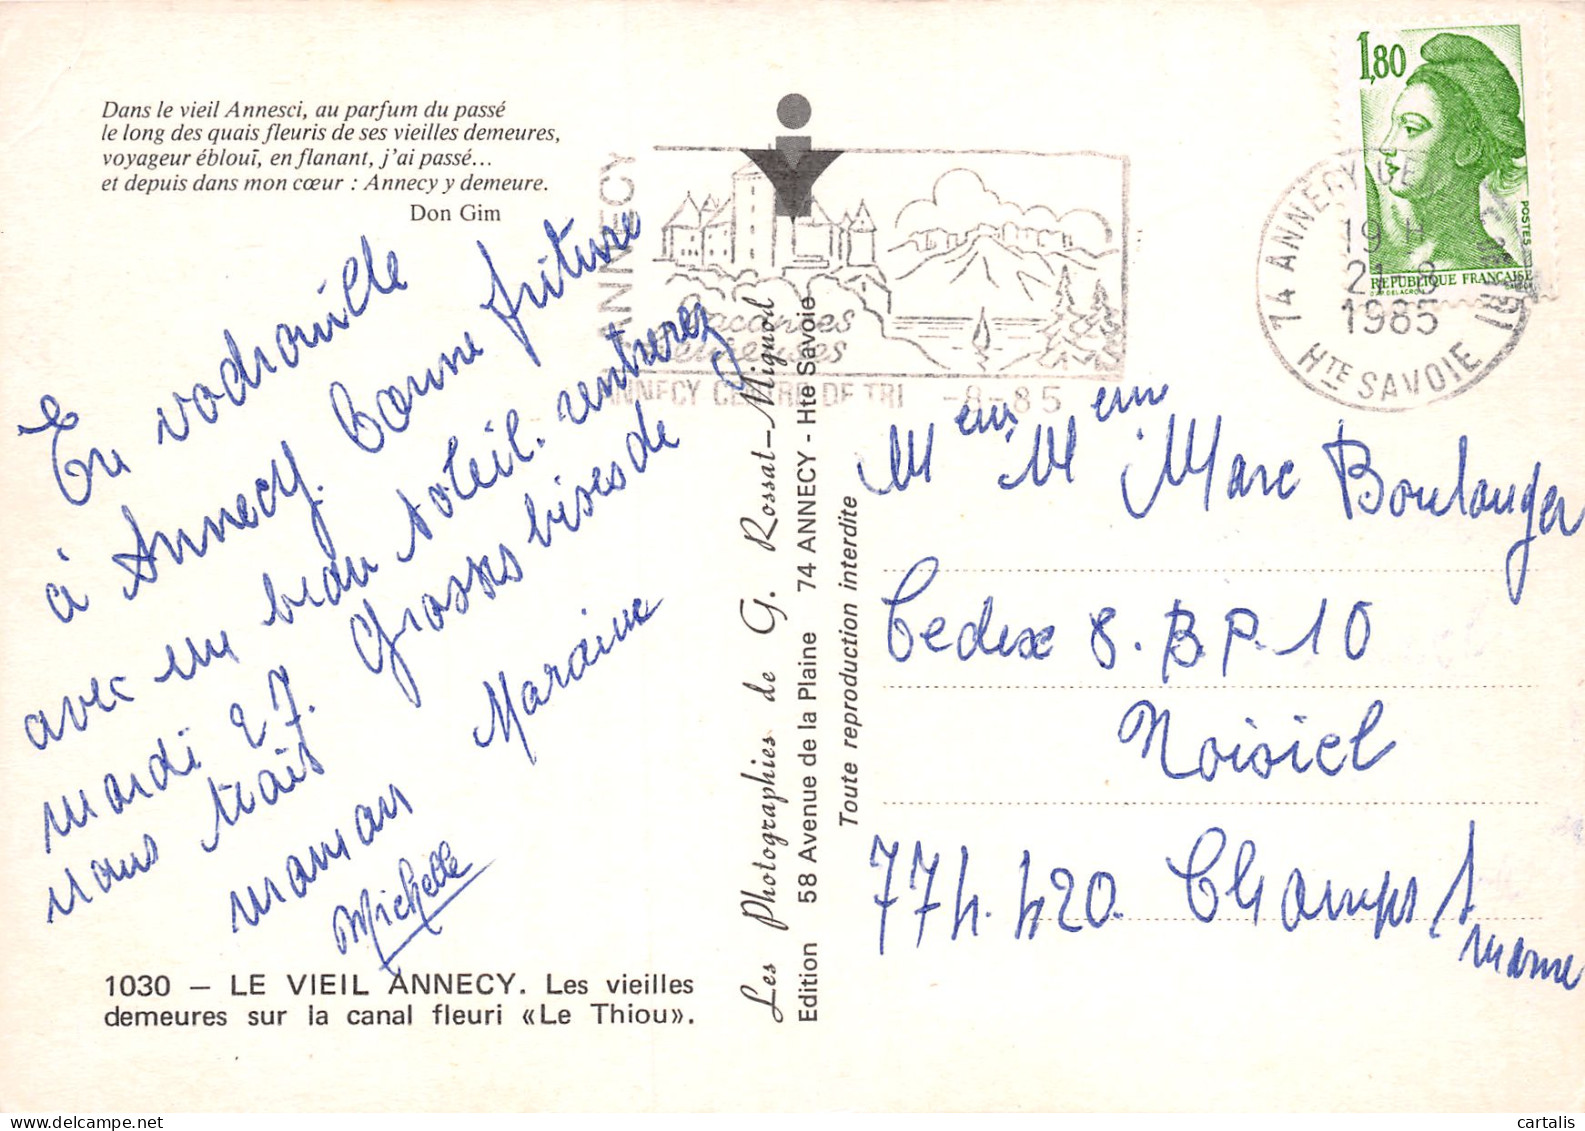 Dans le vieil Annesci, au parfum du passé
le long des quais fleuris de ses vieilles demeures,
voyageur éblouï, en flanant, j'ai passé...
et depuis dans mon cœur : Annecy y demeure.
Don Gim
En vadrouille
à Annecy. bonne friture
avec un beau soleil. rentrerez
mardi 27. Grosses bises de
nous trois
maman Maraine
Michelle
1030 – LE VIEIL ANNECY. Les vieilles
demeures sur la canal fleuri «Le Thiou».
Les Photographies de G. Rossat-Mignod
Edition 58 Avenue de la Plaine 74 ANNECY - Hte Savoie
Toute reproduction interdite
ANNECY
Vacances
ANNECY CENTRE DE TRI -8-85
1,80
POSTES
REPUBLIQUE FRANÇAISE
74 ANNECY CE TRI
19 H
21-8
1985
HTE SAVOIE
Marc Boulanger
Cedex 8. B.P. 10
Noisiel
77420. Champs /
marne
cartalis
www.delcampe.net